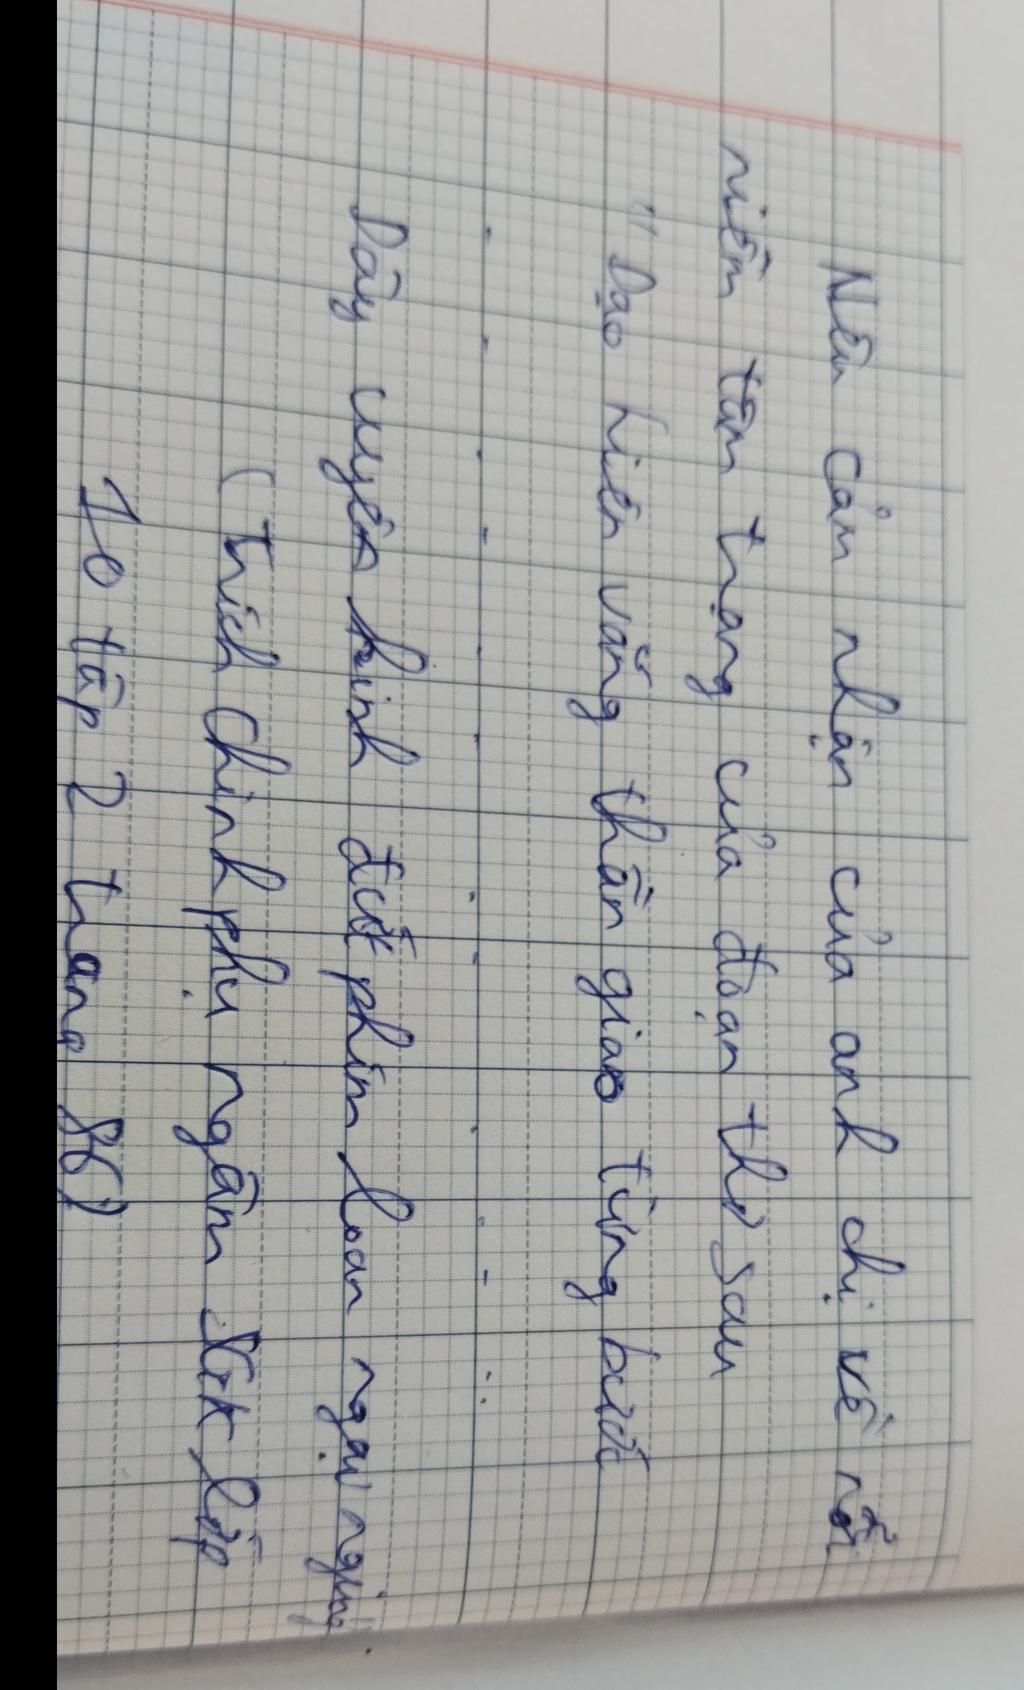 Nêu cảm nhận của anh chị về nỗi
niềm tâm trạng của đoạn thơ sau
"Dạo hiên vắng thần gieo từng bước
. . . . . . . . . . . .
Dây uyên kinh đứt phím loan ngại ngùng
(Trích Chinh phụ ngâm SGK lớp
10 tập 2 trang 86)